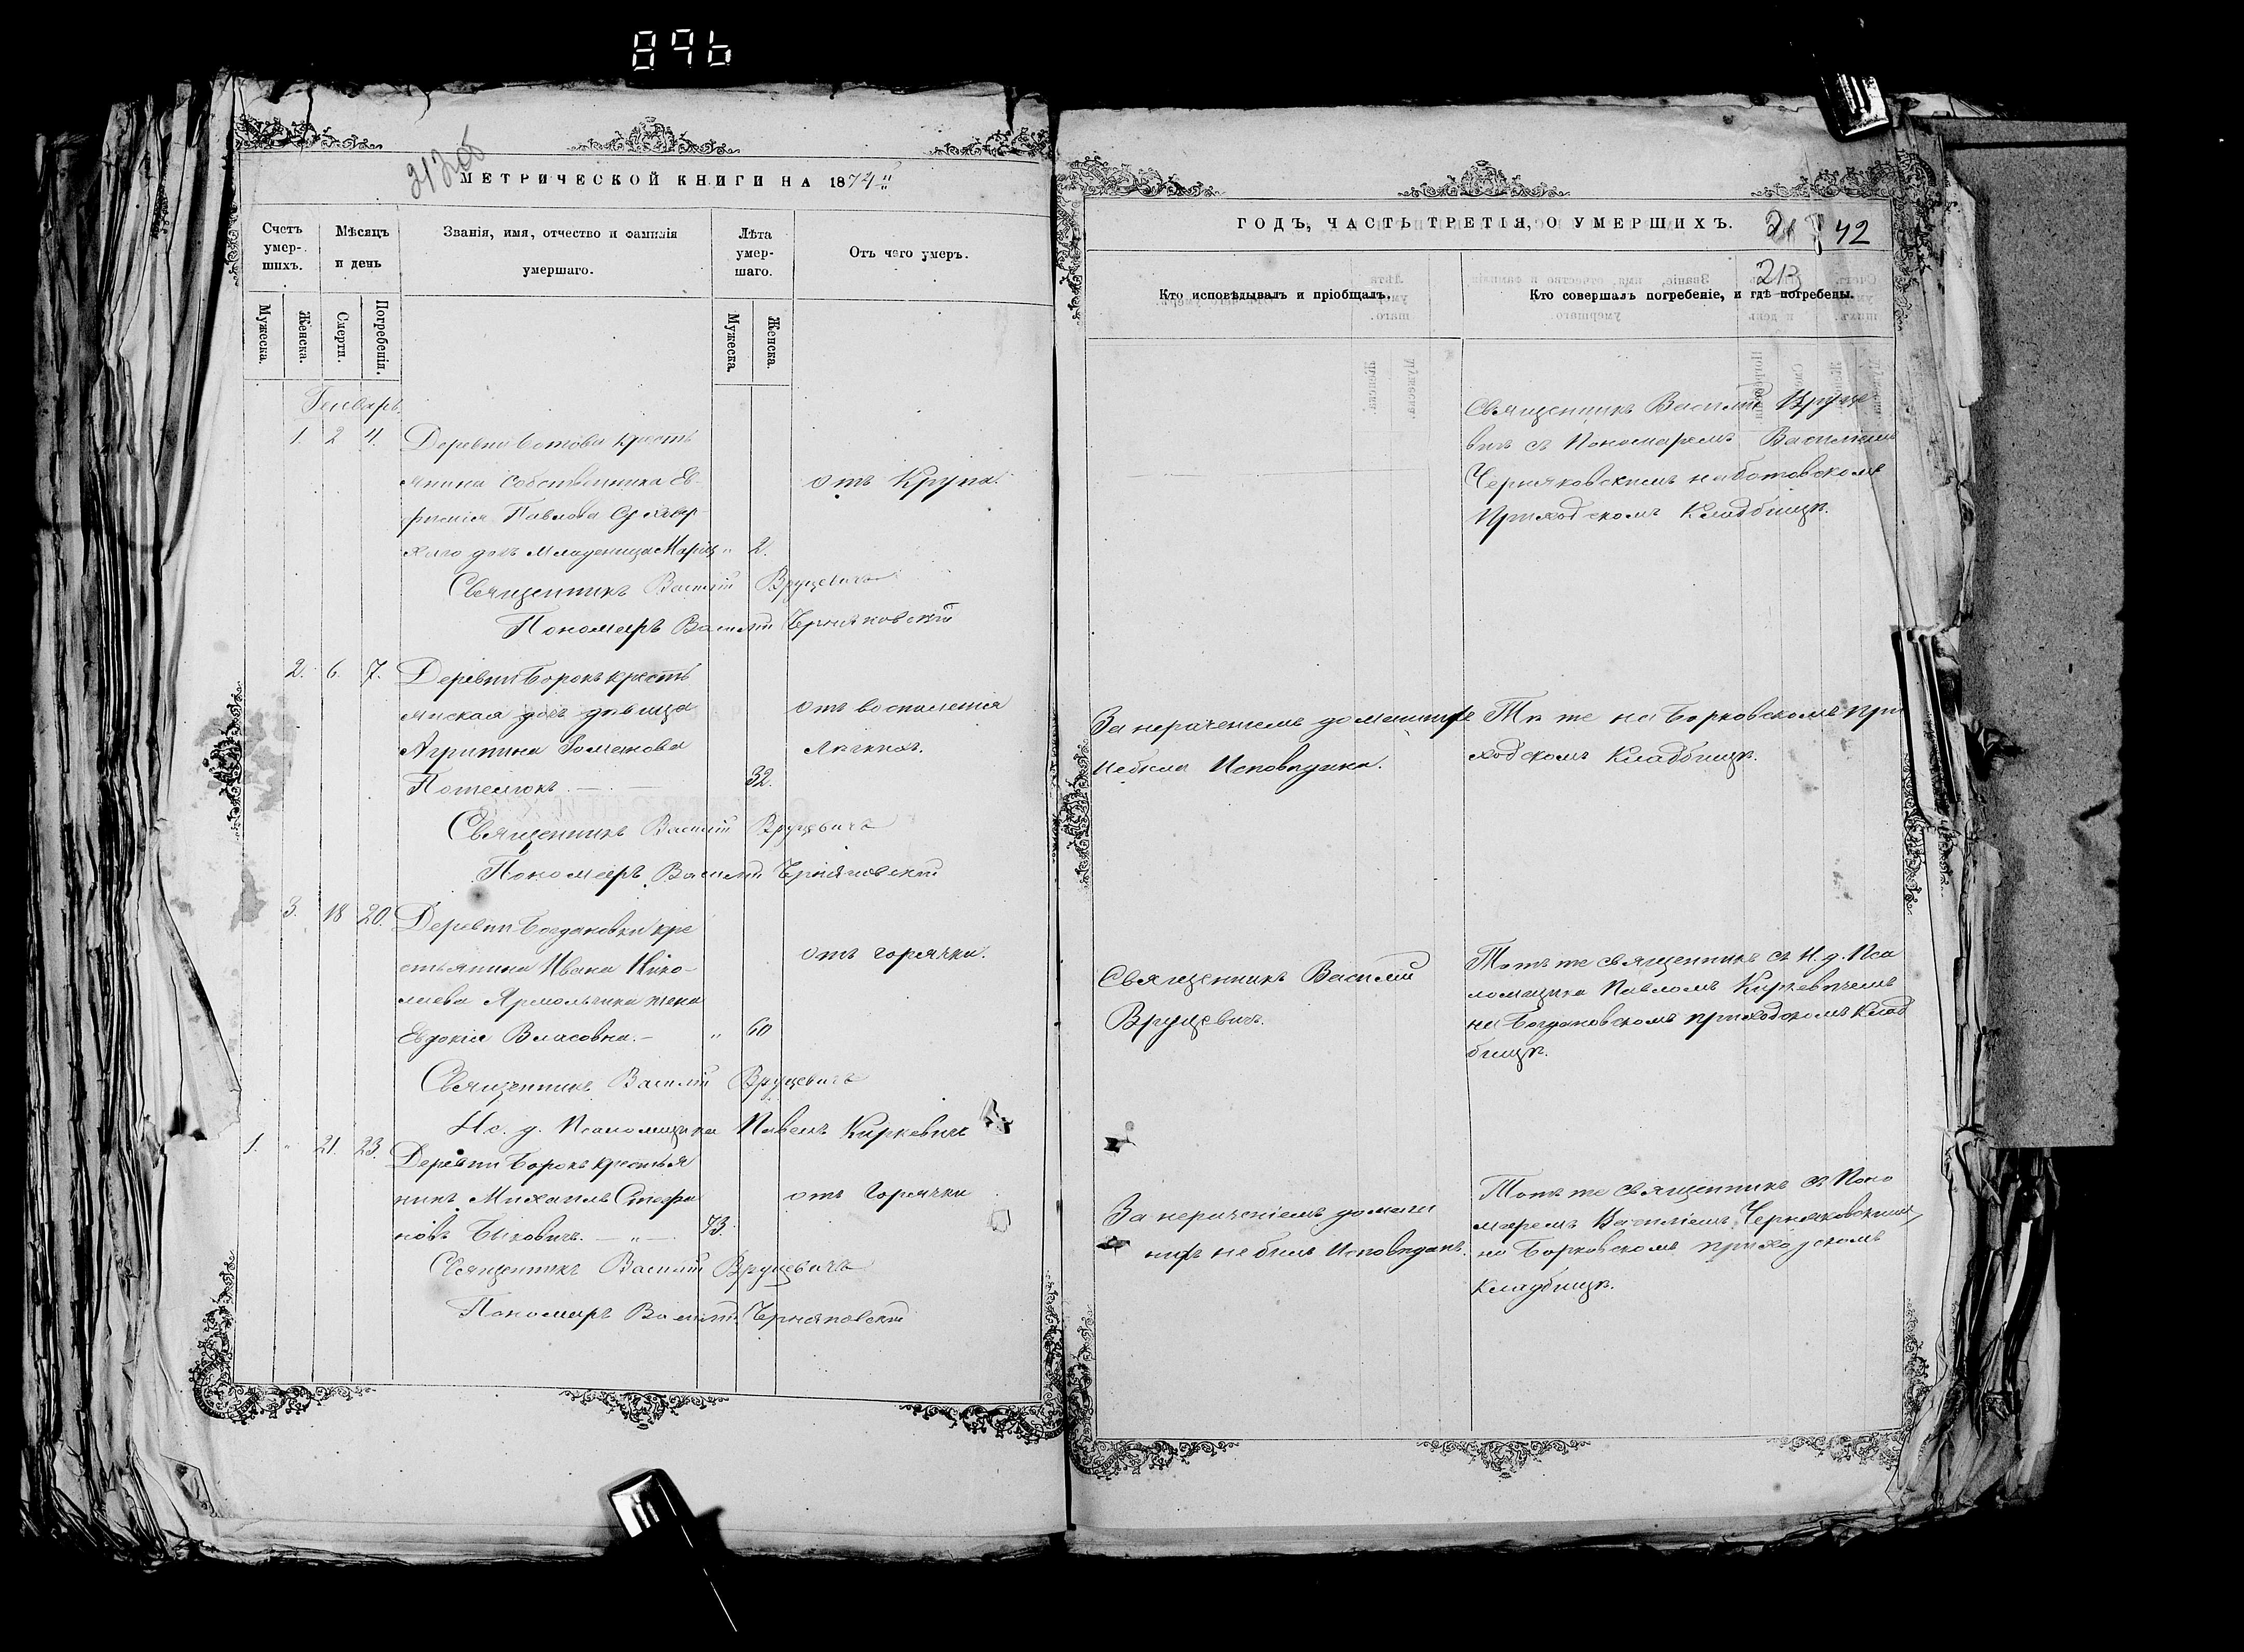 896
212об
МЕТРИЧЕСКОЙ КНИГИ НА 1874й
Счетъ умер-шихъ.
Мѣсяцъ и день
Званія, имя, отчество и фамилія умершаго.
Лѣта умер-шаго.
Отъ чего умеръ.
Мужеска.
Женска.
Смерти.
Погребенія.
Мужеска.
Женска.
Генварь
1. 2 4. Деревни Ботова кресть
янина собственника Ев-
отъ Крупа.
фиміи Павлова
дочь младенца Марія " 2.
Священникъ Василій Вруцевичъ
Пономарь Василій Черняковскій
2. 6. 7. Деревни Борокъ кресть
янская дочь дѣвица
отъ воспаленія
Агрипина Романова
Легкихъ.
Потемокъ 32.
Священникъ Василій Вруцевичъ
Пономарь Василій Черняковскій
3. 18 20. Деревни Богдановки кре
стьянина Ивана Нико-
отъ горячки.
лаева Ярмольчика жена
Евдокія Власовна. — " 60
Священникъ Василій Вруцевичъ
Ис. д. Псаломщика Павелъ Киркевичъ
1. " 21. 23. Деревни Борокъ крестья
нинъ Михаилъ Стефа
отъ Горячки
новъ Быковичъ. — " — 73.
Священникъ Василій Вруцевичъ
Пономарь Василій Черняковскій
ГОДЪ, ЧАСТЬ ТРЕТІЯ, О УМЕРШИХЪ.
42
213
Кто исповѣдывалъ и пріобщалъ.
Кто совершалъ погребеніе, и гдѣ погребены.
Священникъ Василій Вруце
вичъ съ Пономаремъ Василіемъ
Черняковскимъ на Ботовскомъ
приходскомъ Кладбищѣ.
За нераченіемъ домашнихъ
небыла Исповѣдана.
Тѣ же на Борковскомъ при
ходскомъ Кладбищѣ.
Священникъ Василій
Вруцевичъ.
Тотъ же священникъ съ И. д. Пса
ломщика Павломъ Киркевичемъ
на Богдановскомъ приходскомъ Клад
бищѣ.
За нераченіемъ домаш
нихъ небылъ Исповѣданъ.
Тотъ же священникъ съ Поно
маремъ Василіемъ Черняковскимъ,
на Борковскомъ приходскомъ
Кладбищѣ.